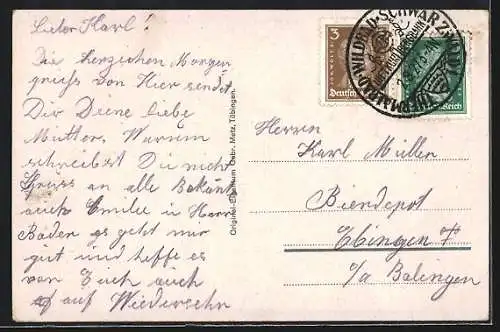 Lieber Karl!
Die herzlichen Morgen
grüsse von Hier sendet
Dir Deine liebe
Mutter. Warum
schreibst Du nicht
Gruss an alle Bekannt
auch Emilie u Herr
Baden es geht mir
gut und hoffe es
von Euch auch
auf Wiedersehn
Original-Eigentum Gebr. Metz, Tübingen.
3
Reich
WILDBAD-SCHWARZWALD
Herrn
Karl Müller
Bierdepot
Ebingen
b/a Balingen